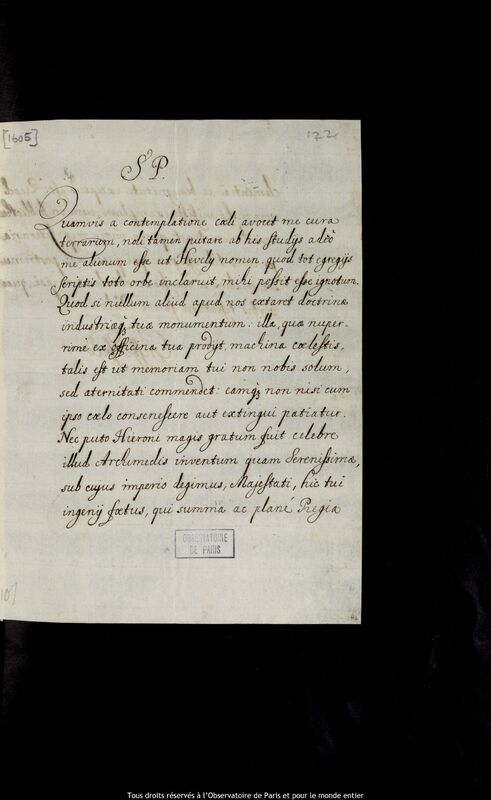 [1605]
122
S. P.
Quamvis a contemplatione cæli avocet me cura
terrarum, noli tamen putare ab his studijs adeò
me alienum esse ut Hevely nomen, quod tot egregijs
scriptis toto orbe inclaruit, mihi possit esse ignotum.
Quod si nullum aliud apud nos extaret doctrinæ
industriæq; tuæ monumentum: illa, quæ nuper-
rimè ex officina tua prodyt, machina cœlestis,
talis est ut memoriam tui non nobis solum,
sed æternitati commendet: eamq; non nisi cum
ipso cœlo consenescere aut extingui patiatur.
Nec puto Hieroni magis gratum fuit celebre
illud Archimedis inventum quam Serenissimæ,
sub cujus imperio degimus, Majestati, hic tui
ingenij fœtus, qui summa ac planè Regia
OBSERVATOIRE
DE PARIS
Tous droits réservés à l'Observatoire de Paris et pour le monde entier